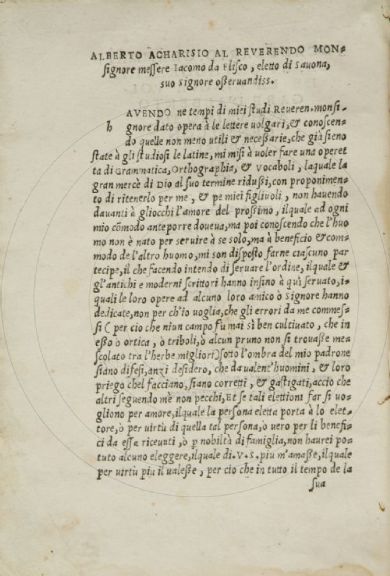 ALBERTO ACHARISIO AL REVERENDO MON=
signore messere Iacomo da Flisco, eletto di Sauona,
suo signore osseruandiss.
h AVENDO ne tempi di miei studi Reueren.monsi=
gnore dato opera à le lettere uolgari, & conoscen=
do quelle non meno utili & necessarie, che già sieno
state à gli studiosi le latine, mi misi à uoler fare una operet
ta di Grammatica, Orthographia, & vocaboli, laquale la
gran mercè di Dio al suo termine ridussi, con proponimen=
to di ritenerlo per me, & pe miei figliuoli, non hauendo
dauanti à gliocchi l'amore del prossimo, ilquale ad ogni
mio cõmodo anteporre doueua, ma poi conoscendo che l'huo
mo non è nato per seruire à se solo, ma à beneficio & com=
modo de l'altro huomo, mi son disposto farne ciascuno par
tecipe, il che facendo intendo di seruare l'ordine, ilquale &
gl'antichi e moderni scrittori hanno insino à quì seruato, i=
quali le loro opere ad alcuno loro amico ò Signore hanno
dedicate, non per ch'io uoglia, che gli errori da me commes=
si (per cio che niun campo fu mai sì ben cultiuato, che in
esso ò ortica, ò triboli, ò alcun pruno non si trouasse me=
scolato tra l'herbe migliori) sotto l'ombra del mio padrone
siano difesi, anzi desidero, che da ualent'huomini, & loro
priego chel facciano, siano corretti, & gastigati, accio che
altri seguendo me non pecchi, Et se tali elettioni far si uo=
gliono per amore, ilquale la persona eletta porta à lo elet=
tore, ò per uirtù di quella tal persona, ò uero per li benefi=
ci da essa riceuuti, ò p nobiltà di famiglia, non haurei po=
tuto alcuno eleggere, ilquale di.V.S. piu m'amasse, ilquale
per uirtù piu il ualesse, per cio che in tutto il tempo de la
sua